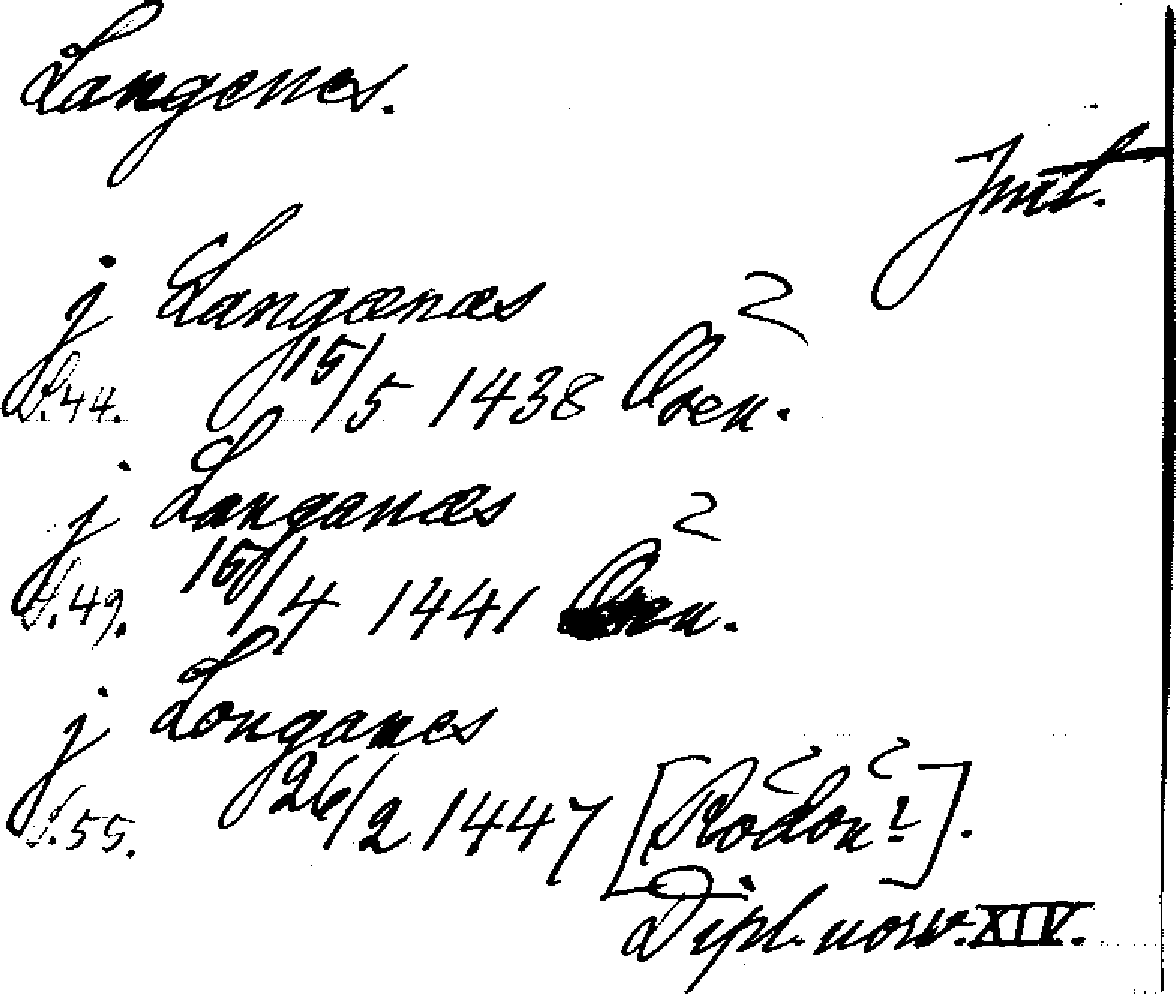 Langenes.
Jmt.
j Langænæs
S.44. 15/5 1438 Oxen.
j Langanæs
S.49. 15/4 1441 Oxen.
j Longanes
S.55. 26/2 1447 [Rödön?].
Dipl. norv. XIV.